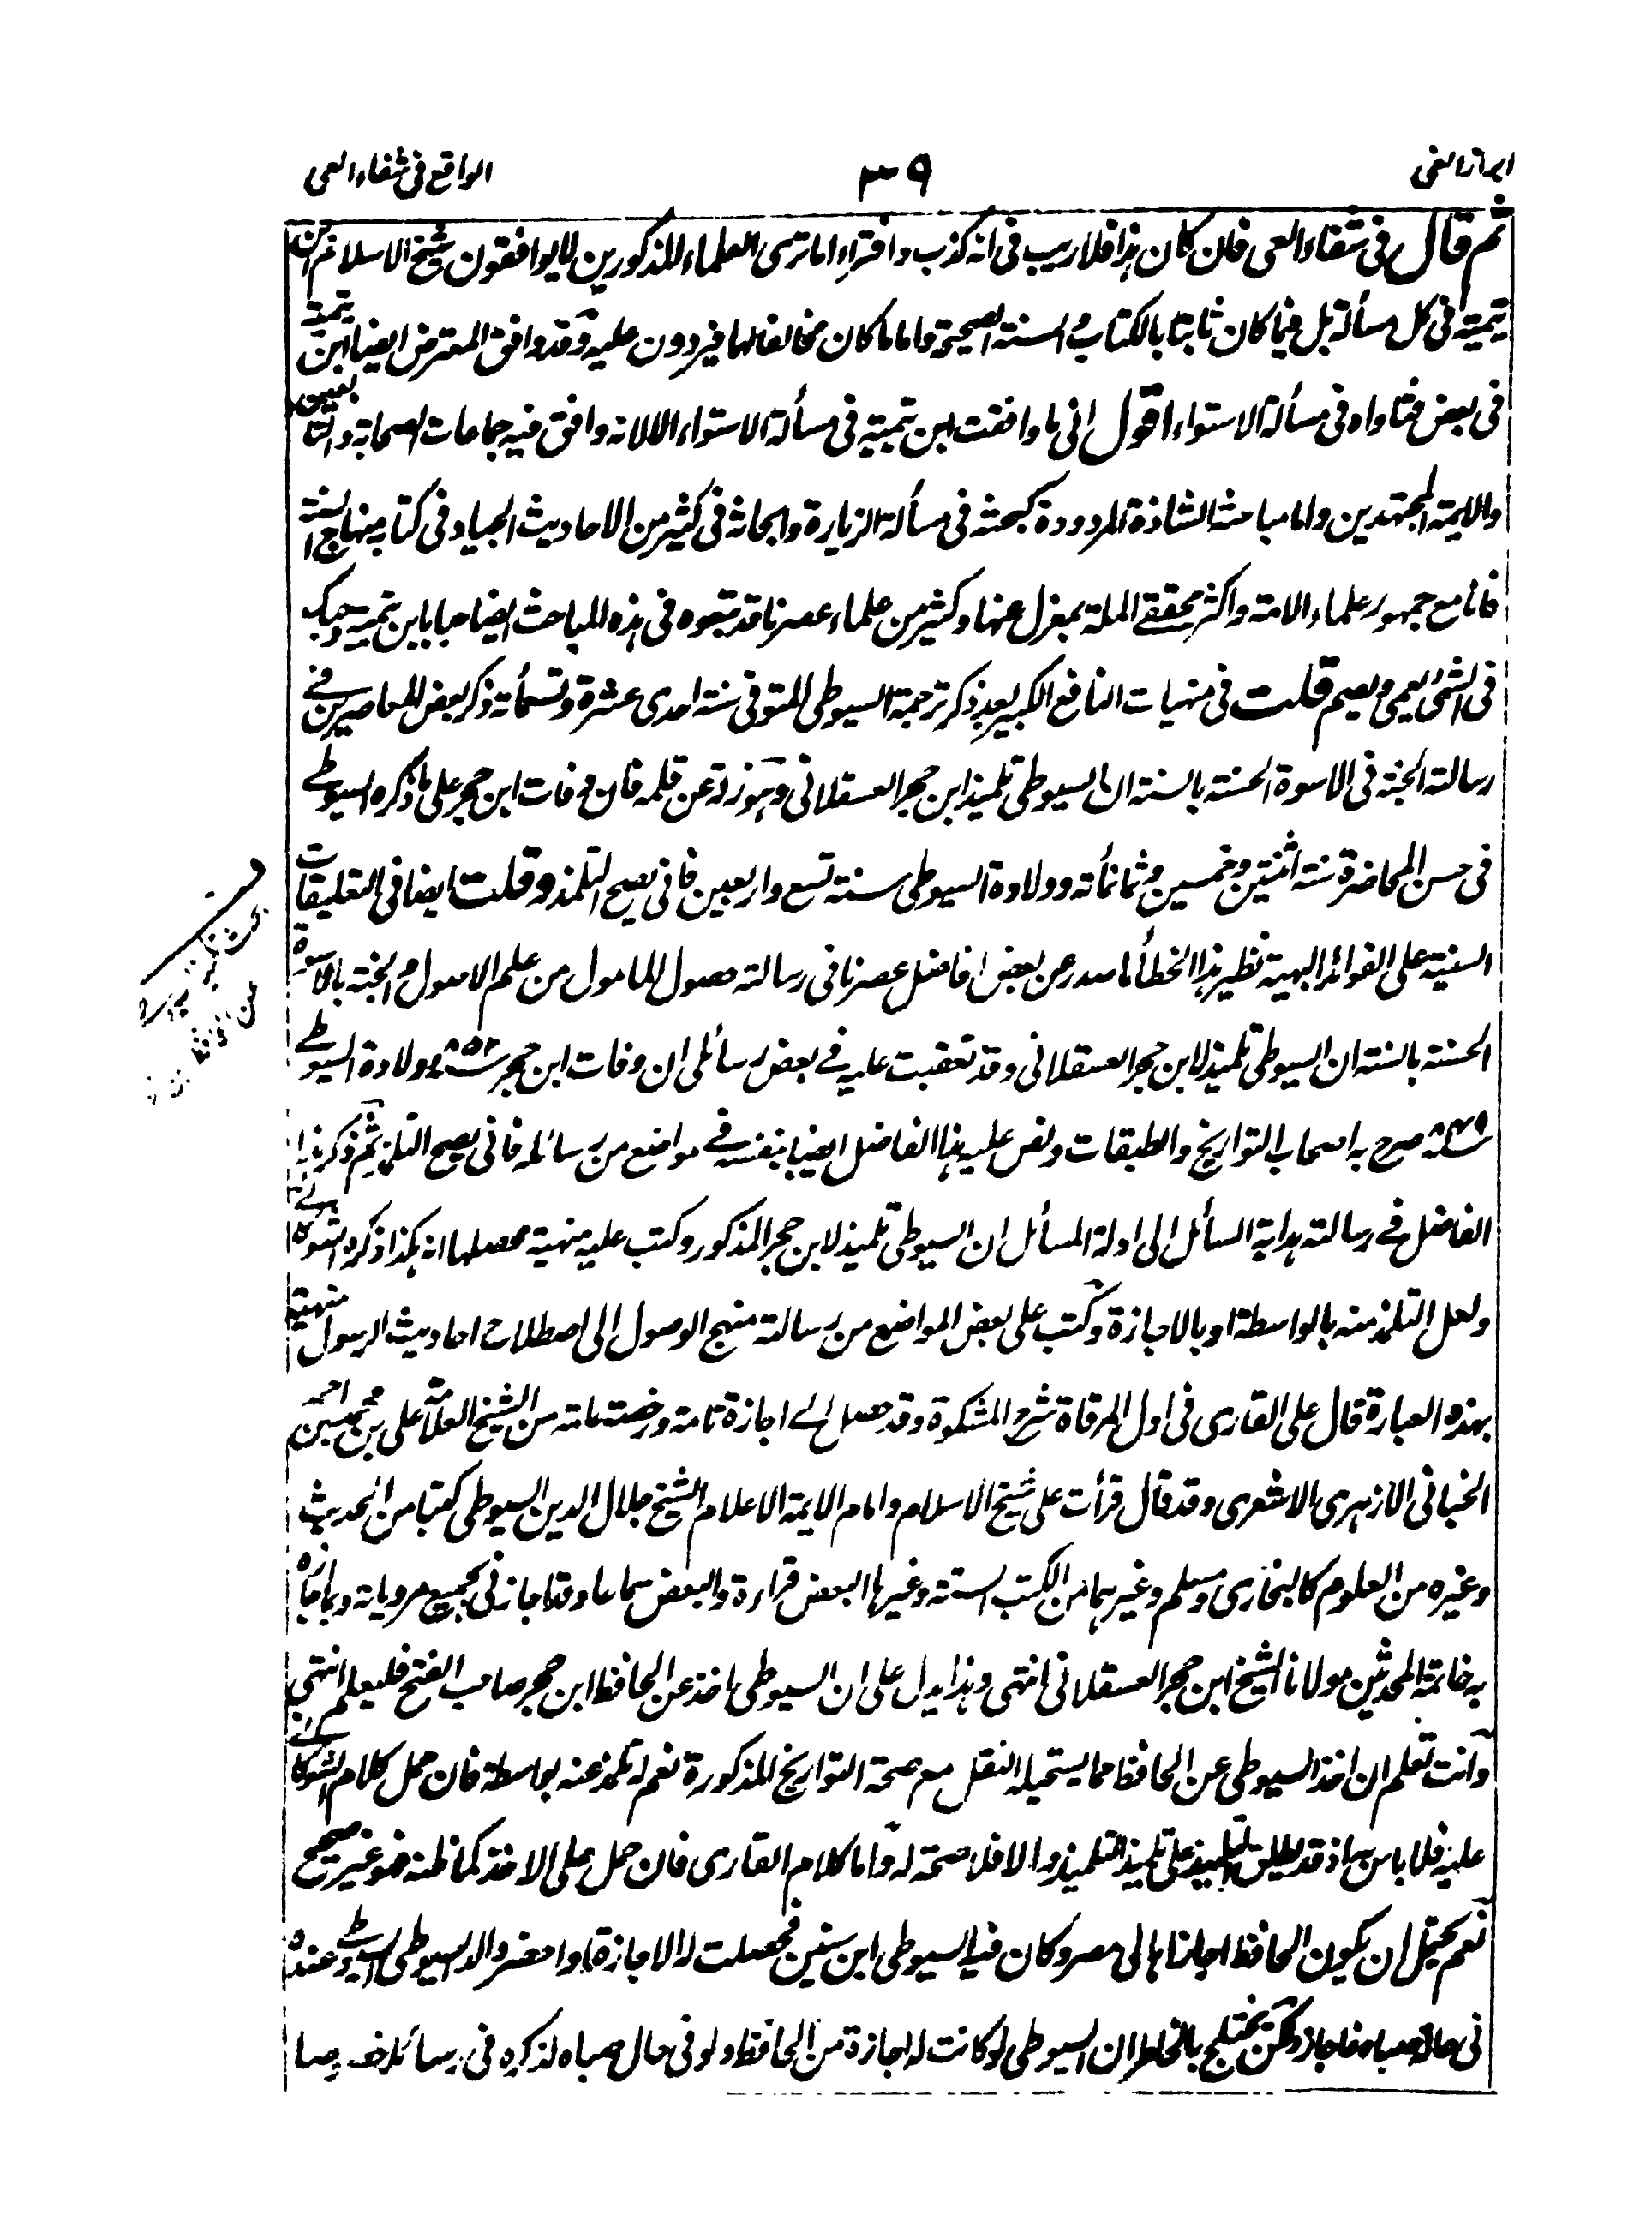 ابراز الغى
٣٩
الواقع فى شفاء العى
ثم قال فى شفاء العى فان كان هذا فلا ريب فى انه كذب وافتراء اما ترى العلماء المذكورين لا يوافقون شيخ الاسلام ابن
تيمية فى كل مسألة بل فيما كان ثابتا بالكتاب والسنة الصحيحة واما ما كان مخالفا لهما فيردون عليه وقد وافق المعترض ايضا ابن تيمية
فى بعض فتاواه فى مسألة الاستواء اقول انى ما وافقت ابن تيمية فى مسألة الاستواء الا لانه وافق فيه جماعات الصحابة والتابعين
والايمة المجتهدين واما مباحثه الشاذة المردودة كبحثه فى مسألة الزيارة وابحاثه فى كثير من الاحاديث الجياد فى كتابه منهاج السنة
فانا مع جمهور علماء الامة واكثر محققے الملة بمعزل عنها وكثير من علماء عصرنا قد تبعوه فى هذه المباحث ايضا حبا بابن تيمية وحبك
فى الشئ يعمى ويصم قلت فى منهيات النافع الكبير بعد ذكر ترجمة السيوطى المتوفى سنة احدى عشرة وتسعمأة ذكر بعض المعاصرين فے
رسالته الجنة فى الاسوة الحسنة بالسنة ان السيوطى تلميذ ابن حجر العسقلانى وهو زلة عن قلمه فان وفات ابن حجر على ما ذكره السيوطے
فى حسن المحاضرة سنة اثنتين وخمسين وثمانمأته وولادة السيوطى سنة تسع واربعين فانى يصح التلمذ وقلت ايضا فى التعليقات
السنية على الفوائد البهية نظير هذا الخطأ ما صدر عن بعض افاضل عصرنا فى رسالته حصول المامول من علم الاصول والجنة بالاسوة
الحسنة بالسنة ان السيوطى تلميذ لابن حجر العسقلانى وقد تعقبت عليه فے بعض رسائلى ان وفات ابن حجر سنة ٨٥٢ وولادة السيوطے
سنة ٨٤٩ صرح به اصحاب التواريخ والطبقات ونص عليه هذا الفاضل ايضا بنفسه فے مواضع من رسائله فانى يصح التلمذ ثم ذكر هذا
الفاضل فے رسالته هداية السائل الى ادلة المسائل ان السيوطى تلميذ لابن حجر المذكور وكتب عليه منهية محصلها انه هكذا ذكره الشوكانے
ولعل التلمذ منه بالواسطة او بالاجازة وكتب على بعض المواضع من رسالته منهج الوصول الى اصطلاح احاديث الرسول منهية
بهذه العبارة قال على القارى فى اول المرقاة شرح المشكوة وقد حصل لے اجازة تامة ورخصة عامة من الشيخ العلامة على بن محمد بن احمد
الجنانى الازهرى الاشعرى وقد قال قرأت على شيخ الاسلام وامام الايمة الاعلام الشيخ جلال الدين السيوطى كتبا من الحديث
وغيره من العلوم كالبخارى ومسلم وغيرهما من الكتب الستة وغيرها البعض قراءة والبعض سماعا وقد اجازنى بجميع مروياته وبما اجازه
به خاتمة المحدثين مولانا الشيخ ابن حجر العسقلانى انتهى وهذا يدل على ان السيوطى اخذ عن الحافظ ابن حجر صاحب الفتح فليعلم انتهى
وانت تعلم ان اخذ السيوطى عن الحافظ مما يستحيله النقل مع صحة التواريخ المذكورة نعم له تلمذ عنه بواسطة فان حمل كلام الشوكانے
عليه فلا باس به اذ قد يطلق التلميذ على تلميذ التلميذ والا فلا صحة له واما كلام القارى فان حمل على الاخذ كما ظنه فهو غير صحيح
نعم يحتمل ان يكون الحافظ اجاز لاهالى مصر وكان فيه السيوطى ابن سنين فحصلت له الاجازة او احضر والد السيوطى السيوطے عنده
فى حالة صباه فاجازه ولكن يختلج بالخاطر ان السيوطى لو كانت له اجازة من الحافظ ولو فى حال صباه لذكره فى رسائله خصوصا